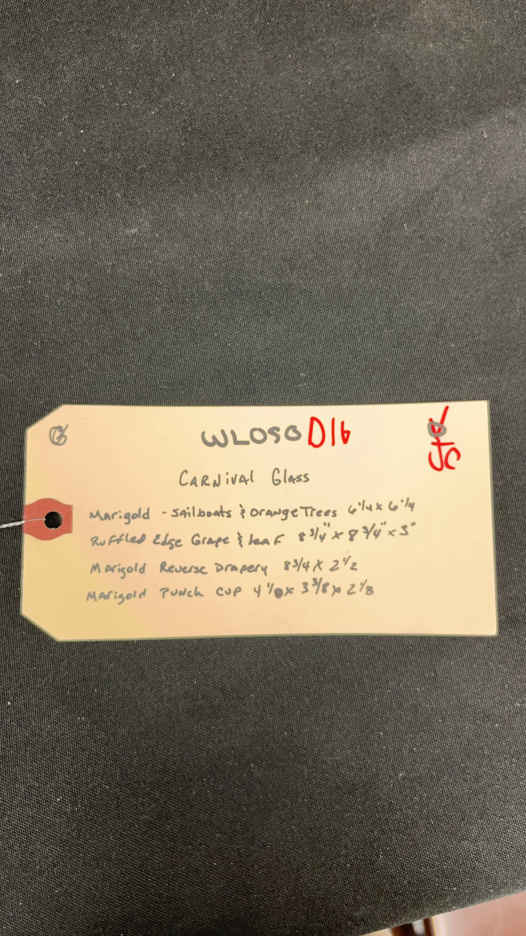 WLOSG D16
JC
Carnival Glass
Marigold - Sailboats & Orange Trees 6 1/4 x 6 1/4
Ruffled Edge Grape & leaf 8 3/4" x 8 3/4" x 3"
Marigold Reverse Drapery 8 3/4 x 2 1/2
Marigold Punch Cup 4 1/8 x 3 3/8 x 2 1/8